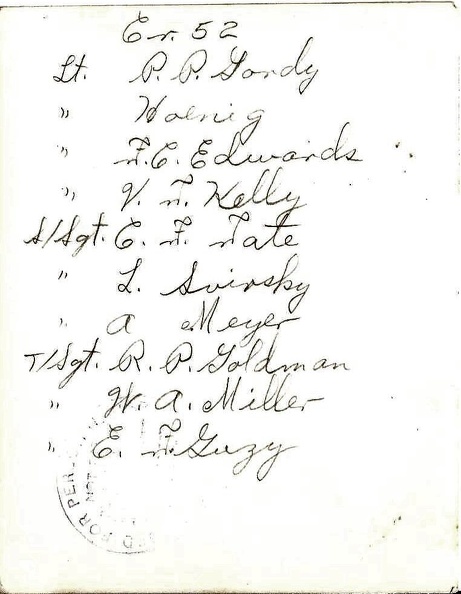 Er. 52
Lt. P. P. Gordy
" Hoenig
" F. C. Edwards
" V. T. Kelly
S/Sgt. E. F. Tate
" L. Svirsky
" A Meyer
T/Sgt. R. P. Goldman
" W. A. Miller
" E. F. Guzy
FOR PER
NOT